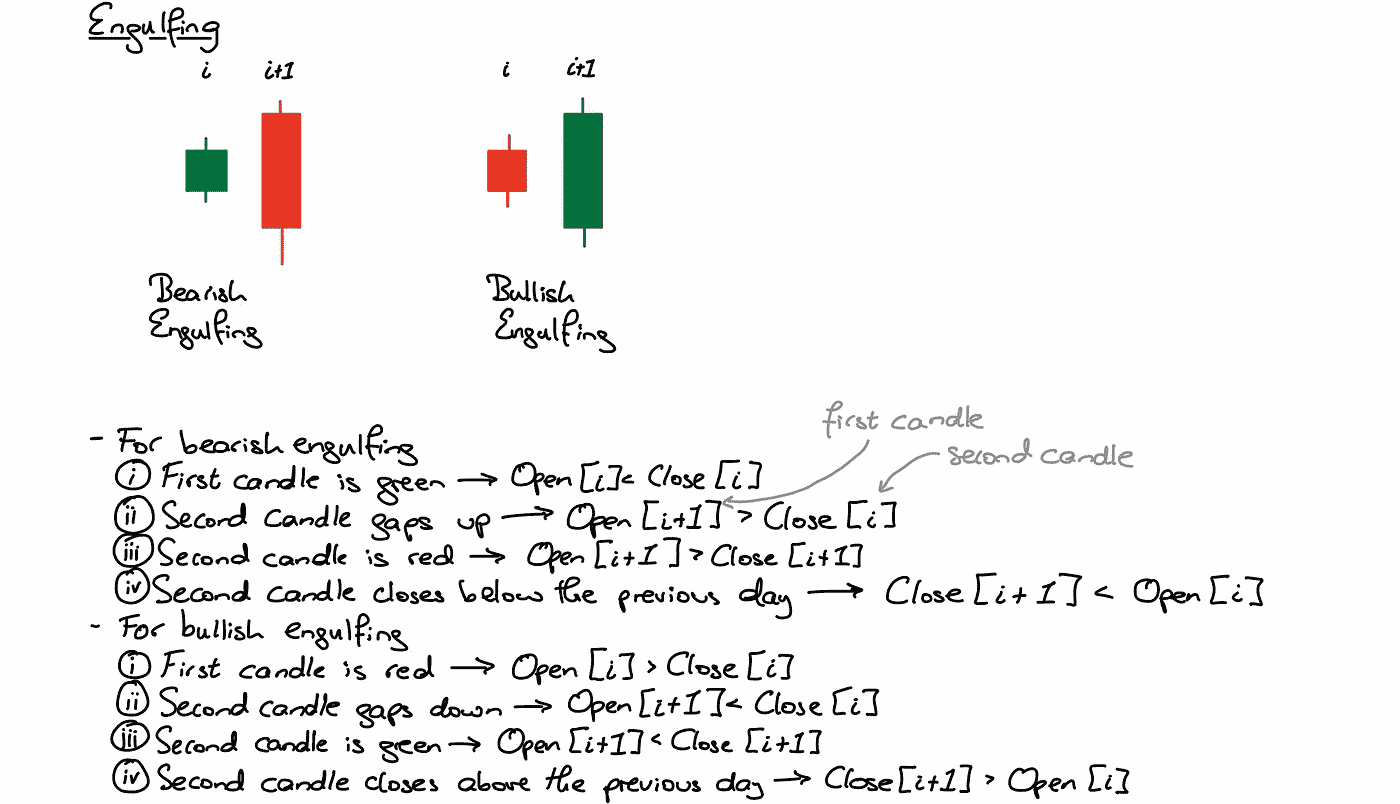 Engulfing
i i+1 i i+1
Bearish
Engulfing
Bullish
Engulfing
first candle
second candle
- For bearish engulfing
(i) First candle is green → Open [i] < Close [i]
(ii) Second candle gaps up → Open [i+1] > Close [i]
(iii) Second candle is red → Open [i+1] > Close [i+1]
(iv) Second candle closes below the previous day → Close [i+1] < Open [i]
- For bullish engulfing
(i) First candle is red → Open [i] > Close [i]
(ii) Second candle gaps down → Open [i+1] < Close [i]
(iii) Second candle is green → Open [i+1] < Close [i+1]
(iv) Second candle closes above the previous day → Close [i+1] > Open [i]